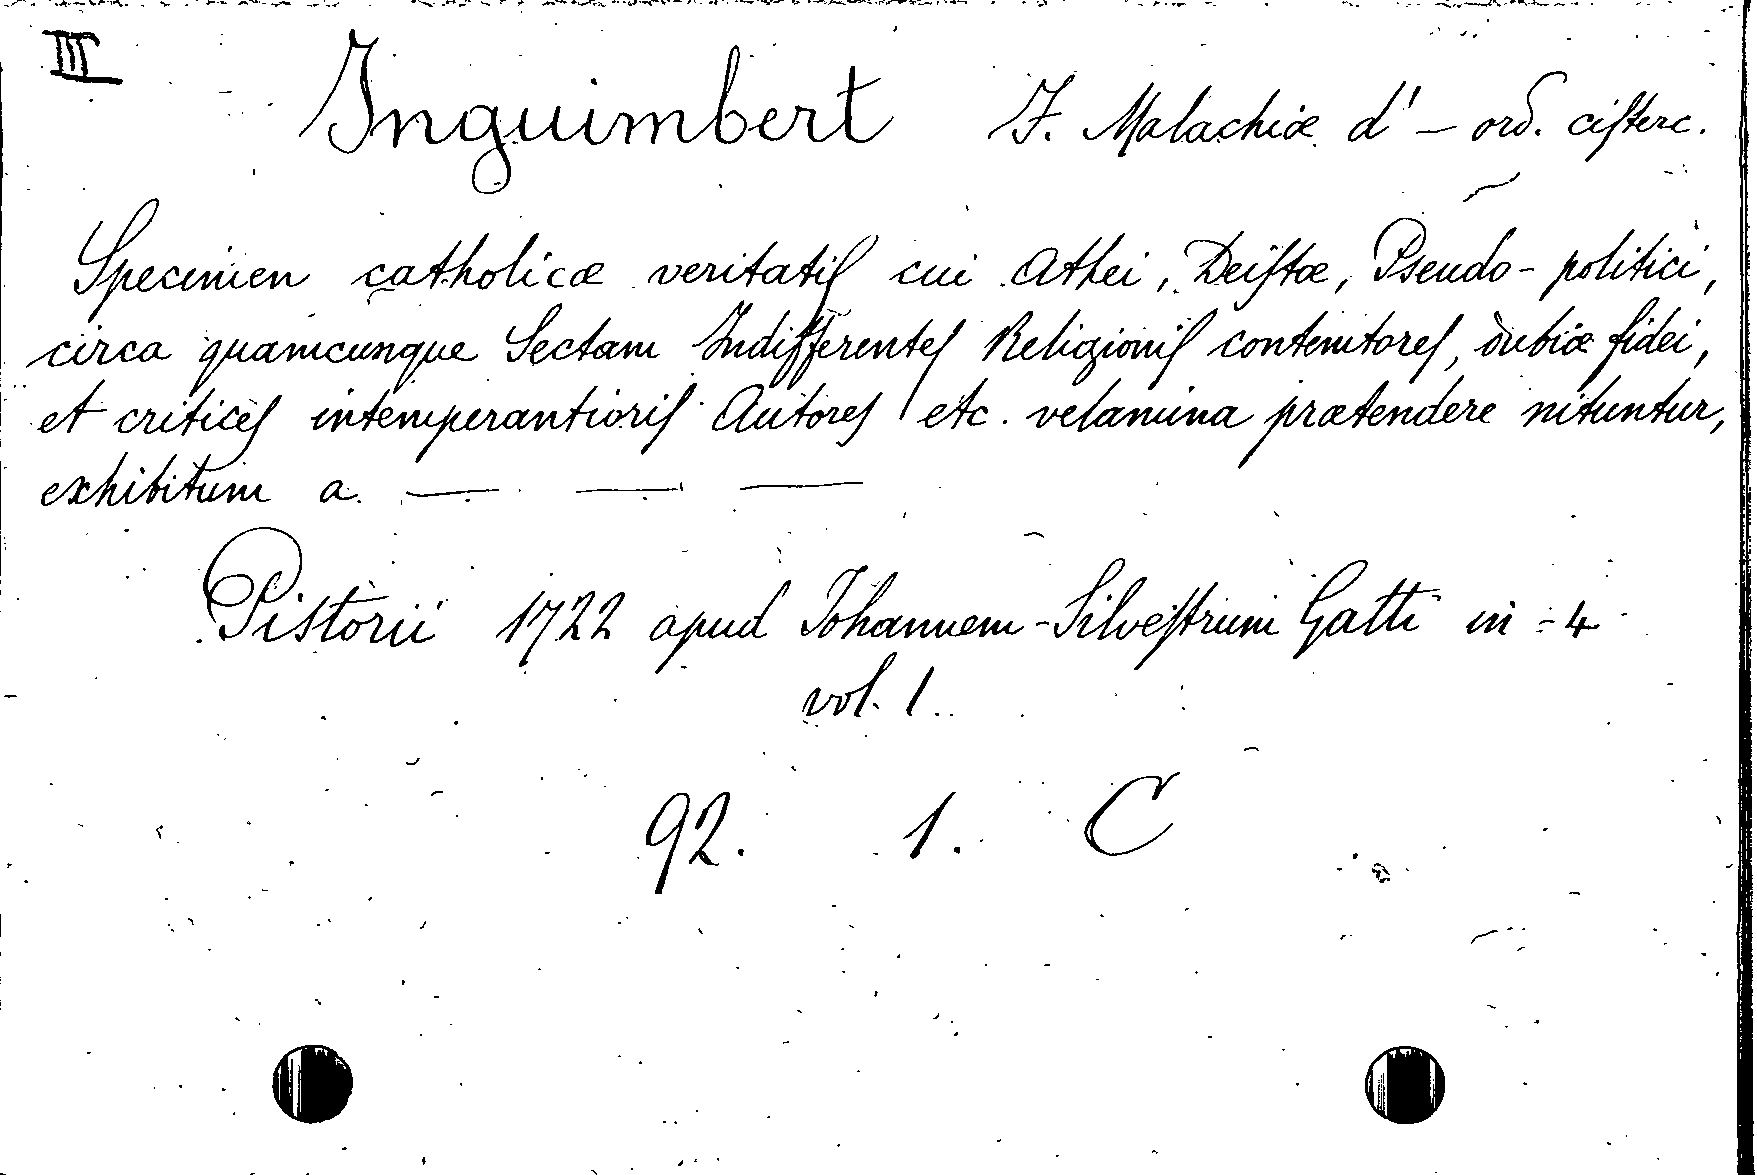 III
Inguimbert F. Malachiæ d' – ord. cisterc.
Specimen catholicæ veritatis cui Athei, Deistæ, Pseudo-politici,
circa quamcunque Sectam Indifferentes Religionis contemtores, dubiæ fidei,
et criticês intemperantioris Autores etc. velamina prætendere nituntur,
exhibitum a. — — —
Pistorii 1722 apud Johannem-Silvestrum Gatti in-4
vol. 1.
92. 1. C